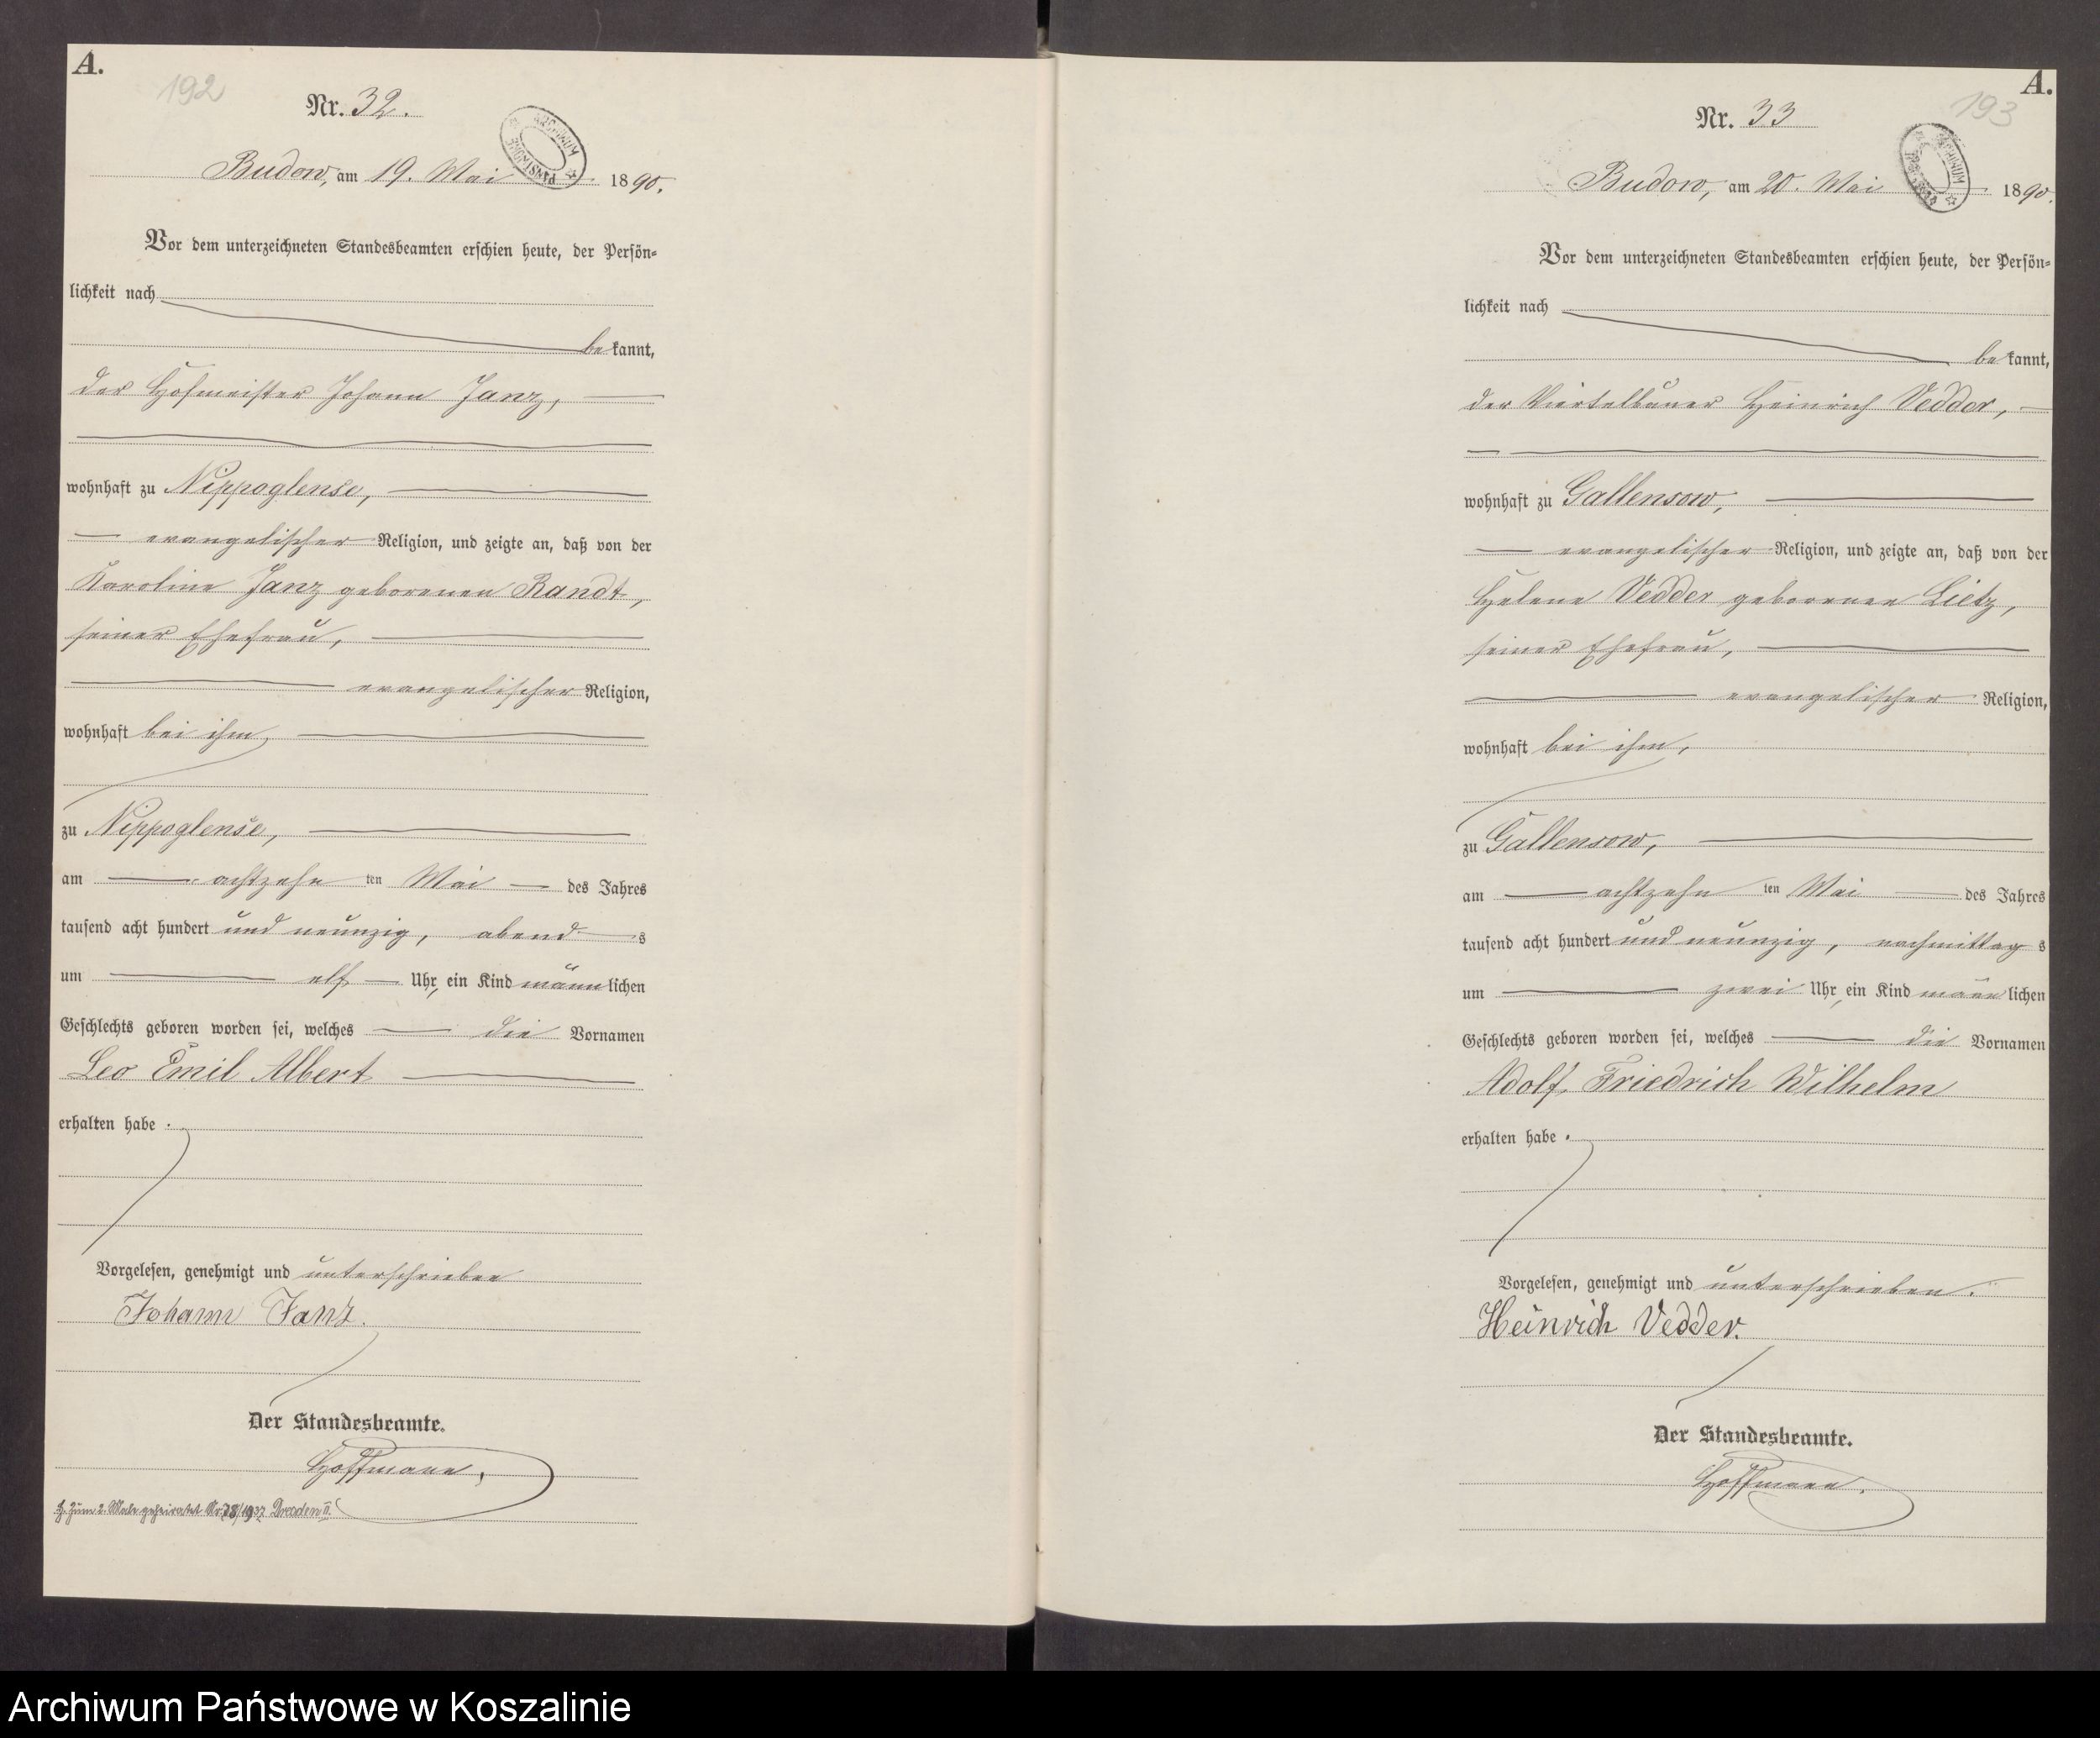 A.
192
Nr. 32.
ARCHIWUM PAŃSTWOWE
Budow, am 19. Mai 1890.
Vor dem unterzeichneten Standesbeamten erschien heute, der Persön-
lichkeit nach
bekannt,
der Hofmeister Johann Janz,
wohnhaft zu Nippoglense,
evangelischer Religion, und zeigte an, daß von der
Karoline Janz geborenen Randt,
seiner Ehefrau,
evangelischer Religion,
wohnhaft bei ihm,
zu Nippoglense,
am achtzehn ten Mai des Jahres
tausend acht hundert und neunzig, abends
um elf Uhr, ein Kind männlichen
Geschlechts geboren worden sei, welches die Vornamen
Leo Emil Albert
erhalten habe.
Vorgelesen, genehmigt und unterschrieben
Johann Janz.
Der Standesbeamte.
Hoffmann.
zum 2. Male geheiratet Nr. 78/1937 Dresden II.
A.
193
Nr. 33
ARCHIWUM
Budow, am 20. Mai 1890.
Vor dem unterzeichneten Standesbeamten erschien heute, der Persön-
lichkeit nach
bekannt,
der Viertelbauer Heinrich Vedder,
wohnhaft zu Gallensow,
evangelischer Religion, und zeigte an, daß von der
Helene Vedder geborenen Lietz,
seiner Ehefrau,
evangelischer Religion,
wohnhaft bei ihm,
zu Gallensow,
am achtzehn ten Mai des Jahres
tausend acht hundert und neunzig, nachmittags
um zwei Uhr, ein Kind männlichen
Geschlechts geboren worden sei, welches die Vornamen
Adolf Friedrich Wilhelm
erhalten habe.
Vorgelesen, genehmigt und unterschrieben.
Heinrich Vedder.
Der Standesbeamte.
Hoffmann.
Archiwum Państwowe w Koszalinie